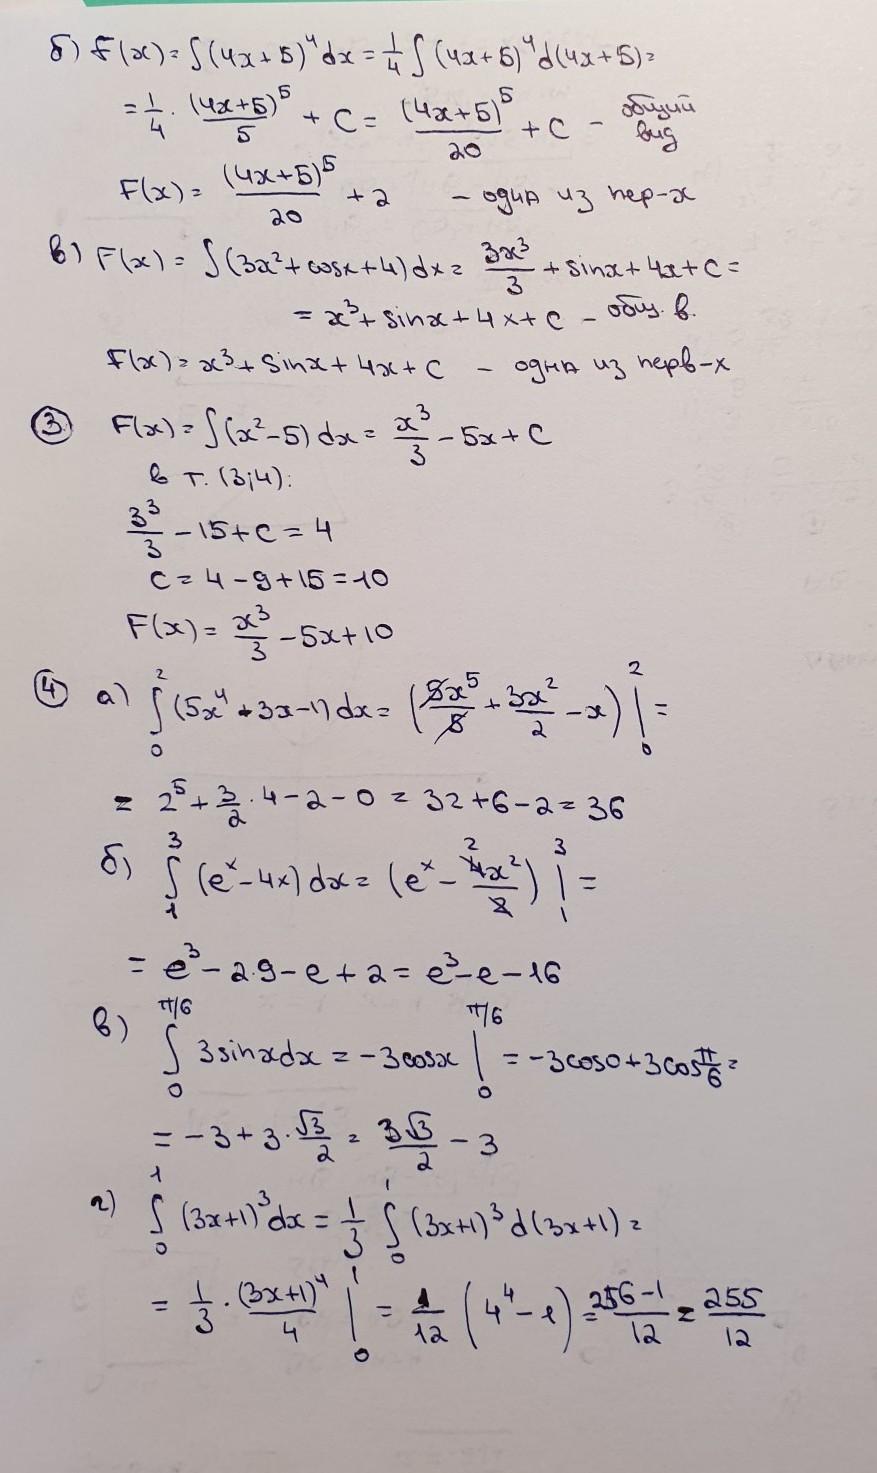 б) F(x) = ∫(4x+5)⁴dx = 1/4 ∫(4x+5)⁴d(4x+5) =
= 1/4 · (4x+5)⁵/5 + C = (4x+5)⁵/20 + C – общий вид
F(x) = (4x+5)⁵/20 + 2 – одна из пер-х
в) F(x) = ∫(3x²+cosx+4)dx = 3x³/3 + sinx + 4x + C =
= x³ + sinx + 4x + C – общ. в.
F(x) = x³ + sinx + 4x + C – одна из перв-х
③ F(x) = ∫(x²–5)dx = x³/3 – 5x + C
в т. (3;4):
3³/3 – 15 + C = 4
C = 4 – 9 + 15 = 10
F(x) = x³/3 – 5x + 10
④ а) ∫₀² (5x⁴+3x–1)dx = (5x⁵/5 + 3x²/2 – x)|₀² =
= 2⁵ + 3/2 · 4 – 2 – 0 = 32 + 6 – 2 = 36
б) ∫₁³ (eˣ – 4x)dx = (eˣ – 4x²/2)|₁³ =
= e³ – 2·9 – e + 2 = e³ – e – 16
в) ∫₀^π/6 3sinxdx = –3cosx|₀^π/6 = –3cos0 + 3cos π/6 =
= –3 + 3 · √3/2 = 3√3/2 – 3
г) ∫₀¹ (3x+1)³dx = 1/3 ∫₀¹ (3x+1)³d(3x+1) =
= 1/3 · (3x+1)⁴/4 |₀¹ = 1/12 (4⁴ – 1) = 256–1/12 = 255/12